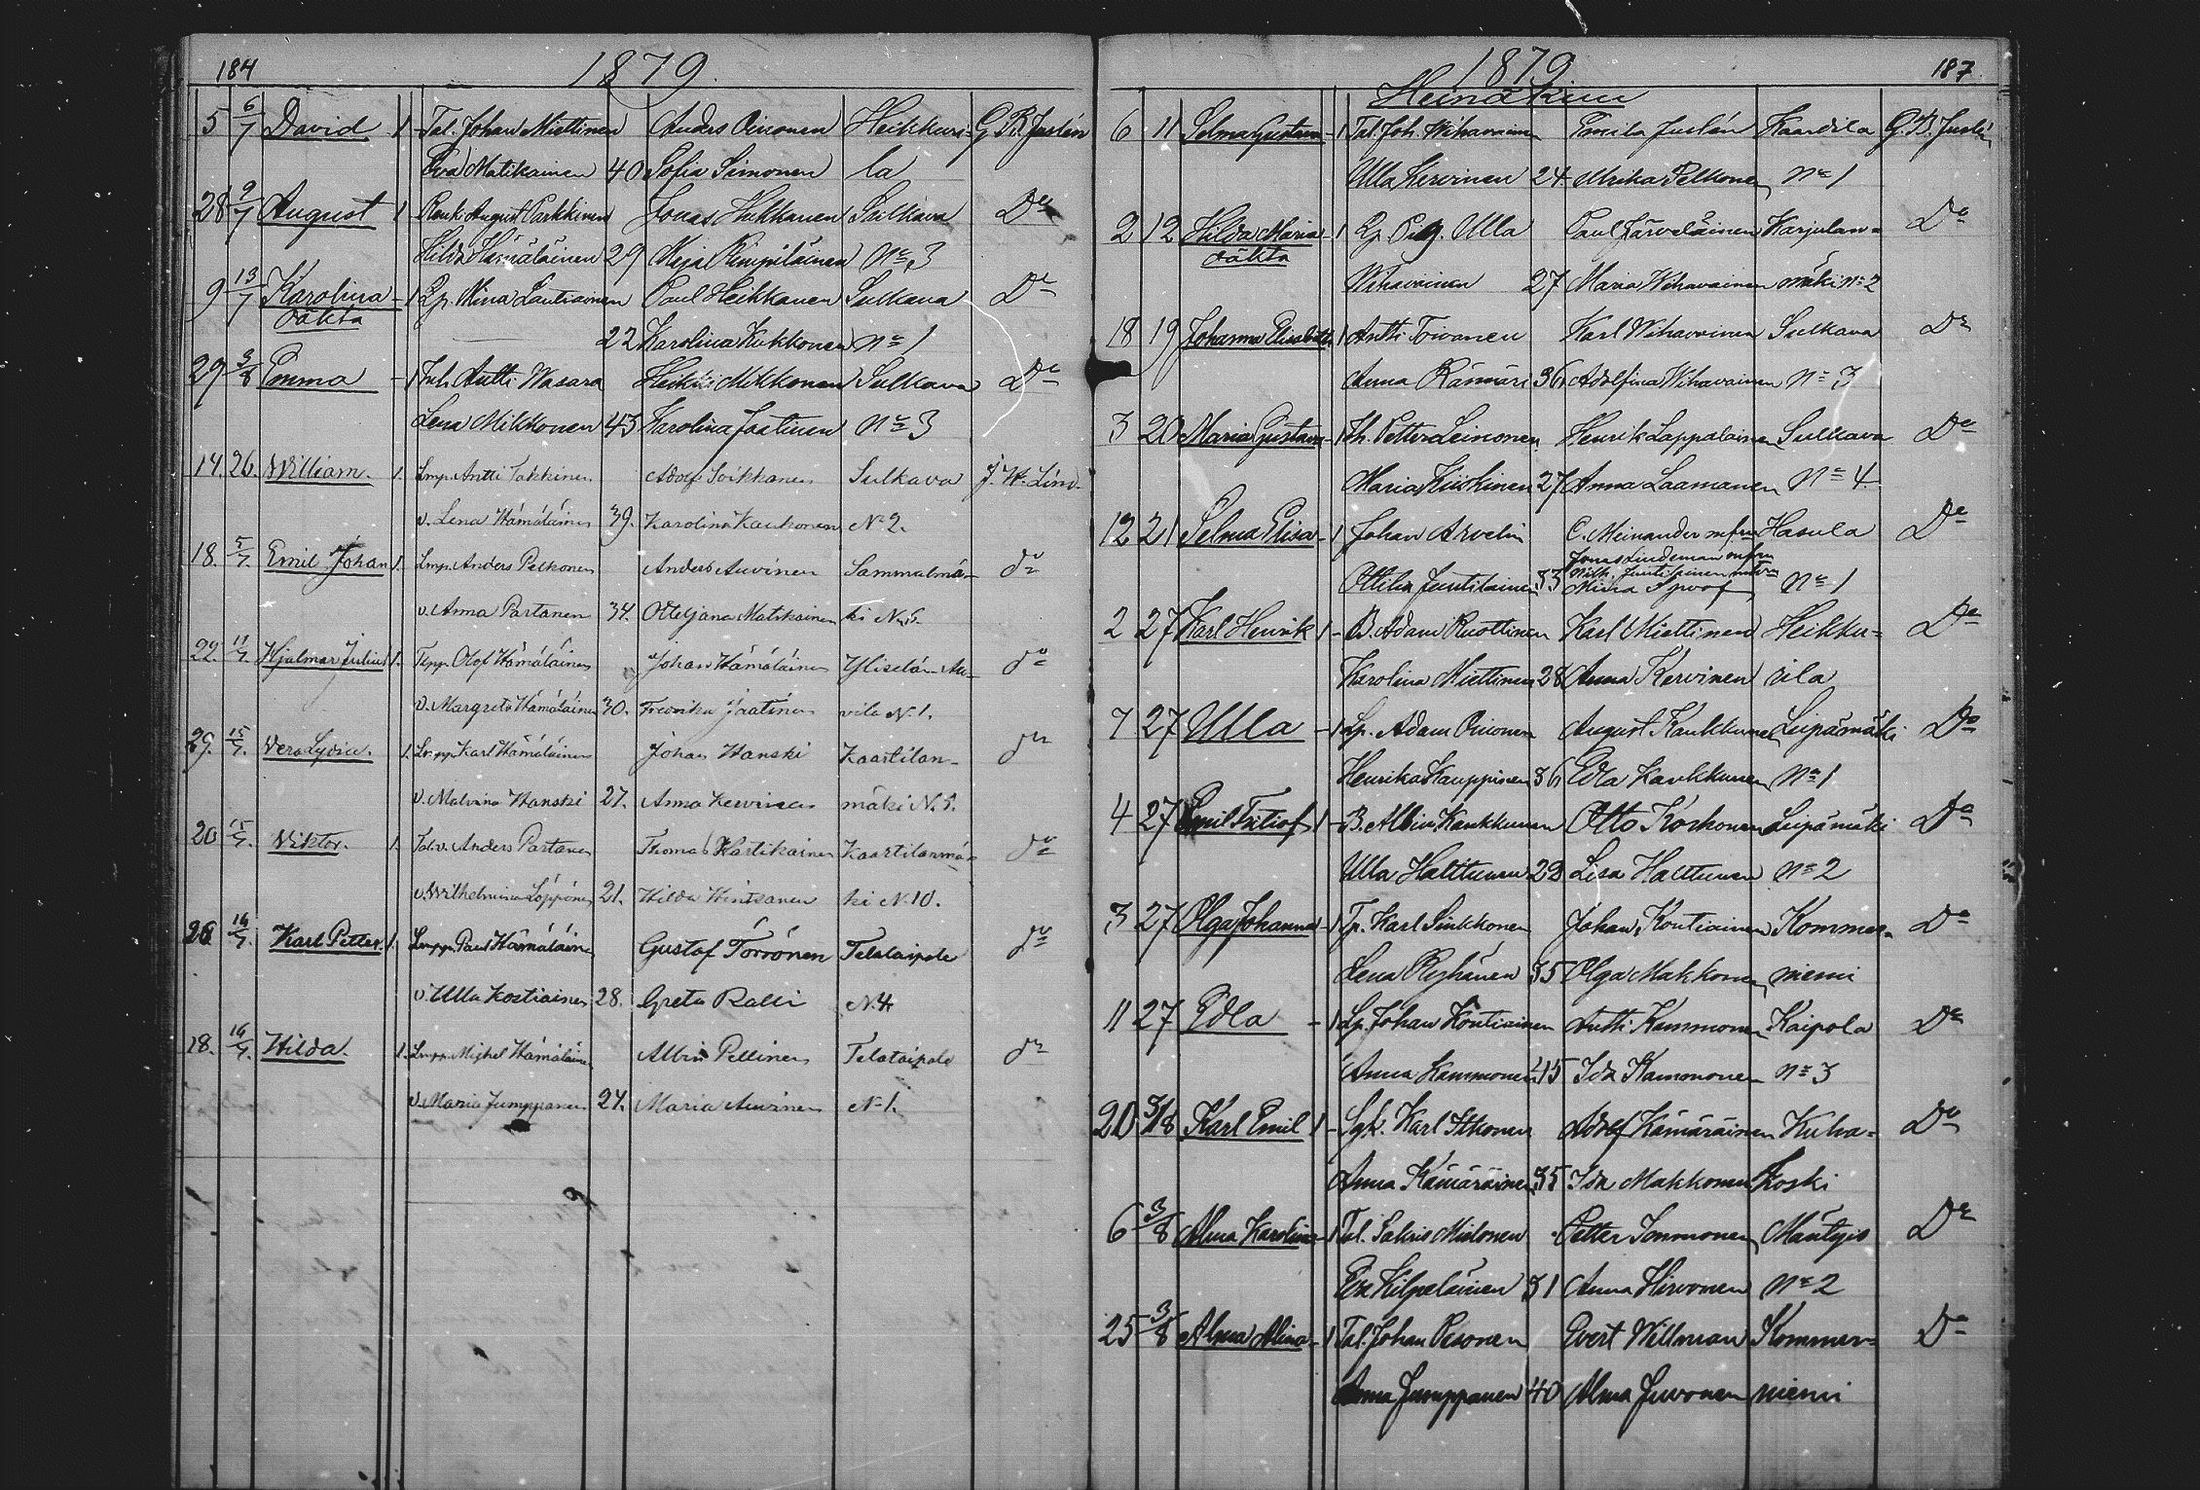 184 1879.
5 6/7 David 1 Tal. Johan Miettinen Anders Oinonen Heikkuri- G. B. Juslén
Eva Matikainen 40 Sofia Simonen la
28 9/7 August 1 Renk. August Parkkinen Jonas Hukkanen Sulkava Do
Hilda Hämäläinen 29 Meja Rimpiläinen No 3
9 13/7 Karolina -1 Lp. Mina Lautiainen Paul Heikkanen Sulkava Do
oäkta
22 Karolina Kukkonen No 1
29 3/8 Emma -1 Inh. Antti Wasara Heikki Mikkonen Sulkava Do
Lena Mikkonen 43 Karolina Jaatinen No 3
14. 26. William. 1. Lmp. Antti Takkinen Adolf Soikkanen Sulkava J. W. Lind.
v. Lena Hämäläinen 39. Karolina Kaukonen No 2.
18. 5/7. Emil Johan 1. Lmp. Anders Pelkonen Anders Auvinen Sammalmä- do
v. Anna Partanen 34. Ottiljana Matikainen ki No 5.
22. 11/7. Hjalmar Julius 1. Olof Hämäläinen Johan Hämäläinen Yliselän Au- do
v. Margreta Hämäläinen 30. Fredrika Jaatinen vila No 1.
29. 15/7. Vera Lydia. 1. Karl Hämäläinen Johan Hanski Kaartilan- do
v. Malvina Hanski 27. Anna Kervinen mäki No 5.
20 15/7. Viktor. 1. Talv. Anders Partanen Thomas Hartikainen Kaartilanmä- do
v. Wilhelmina Löppönen 21. Hilda Hintsanen ki No 10.
26 16/7. Karl Petter 1. Lmpp. Paul Hämäläinen Gustaf Törrönen Telataipale do
v. Ulla Kostiainen 28. Greta Ralli No 4
18. 16/7. Hilda. 1. Lmpp. Mighel Hämäläinen Albin Pellinen Telataipale do
v. Maria Jumppanen 24. Maria Auvinen No 1.
1879. 187.
Heinäkuu
6 11 Selma Gustava -1 Tal. Joh. Wihavainen Emila Juslén Kaardila G. B. Juslén
Ulla Kervinen 24 Ulrika Pelkonen No 1
2 12 Hilda Maria -1 Lp. Pig. Ulla Paul Järveläinen Karjulan- Do
oäkta
Wihavainen 27 Maria Wihavainen mäki No 2
18 19 Johanna Elisabeth 1 Antti Toivanen Karl Wihavainen Sulkava Do
Anna Rämäri 36 Adolfina Wihavainen No 3
3 20 Maria Gustava -1 Ih. Petter Leinonen Henrik Lappalainen Sulkava Do
Maria Kiiskinen 27 Anna Laamanen No 4
12 21 Selma Elisa -1 Johan Arvelin C. Meinander m. fru Hasula Do
Jonas Lindeman m fru
Ottilia Juutilainen 33 Miina No 1
2 27 Karl Henrik 1 - B. Adam Ruottinen Karl Miettinen Heikku- Do
Karolina Miettinen 28 Anna Kervinen rila
7 27 Ulla -1 Lp. Adam Oinonen August Kaukkunen Leipämäki Do
Henrika Kauppinen 36 Edla Kaukkunen No 1
4 27 Emil Fritiof 1 - B. Albin Kaukkunen Otto Koskonen Leipämäki Do
Ulla Halttunen 29 Lisa Halttunen No 2
3 27 Olga Johanna -1 Tp. Karl Sinkkonen Johan Kontiainen Kommer- Do
Lena Ryhänen 35 Olga Makkonen niemi
11 27 Edla -1 Lp. Johan Kontiainen Antti Kammonen Kaipola Do
Anna Kammonen 45 Ida Kammonen No 3
20 3/8 Karl Emil 1 - Karl Itkonen Adolf Kämäräinen Kuha- Do
Anna Kämäräinen 35 Ida Makkonen koski
6 3/8 Alma Karolina -1 Tal. Sakris Mielonen Petter Simmonen Mäntyis Do
Eva Kilpeläinen 31 Anna Hirvonen No 2
25 3/8 Alma Alina -1 Tal. Johan Pesonen Evert Willman Kommer- Do
Anna Jumppanen 40 Alma Juvonen niemi